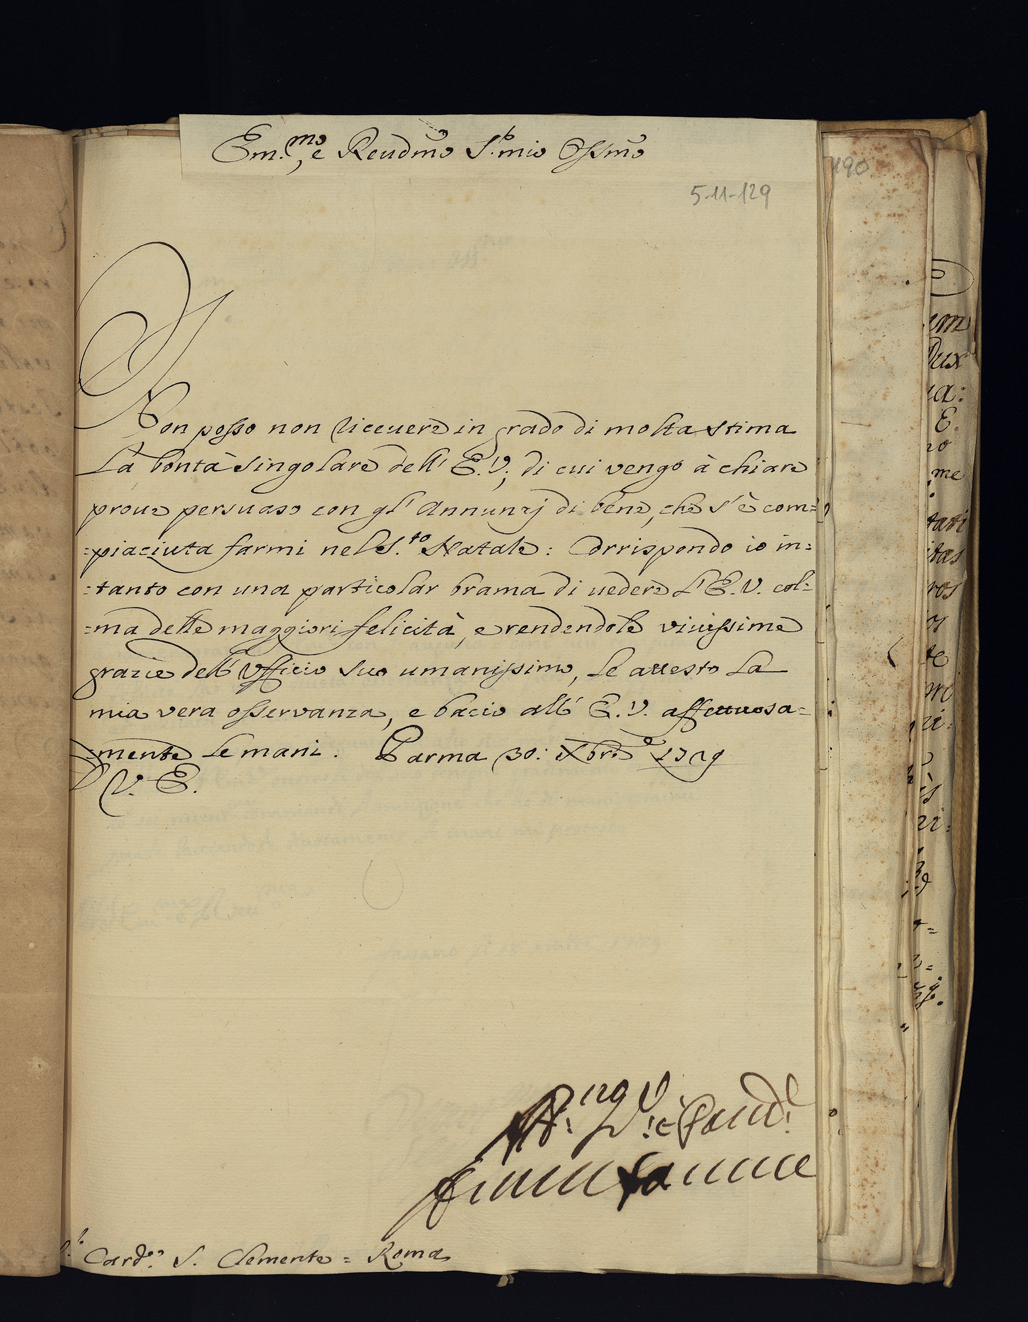 Em.mo, e Reudmo S.r mio Ossmo
5-11-129
190
Non posso non riceuere in grado di molta stima
La bontà singolare dell' E.V., di cui vengo à chiare
proue persuaso con gl' Annunzj di bene, che s' è com=
=piaciuta farmi nel S.to Natale: Corrispondo io in=
=tanto con una particolar brama di uedere L' E.V. col=
=ma delle maggiori felicità, e rendendole viuissime
grazie dell' Ufficio suo umanissimo, Le attesto La
mia vera osseruanza, e bacio all' E.V. affettuosa=
=mente Le mani. Parma 30: Xbre 1729
D V. E.
Card.e S. Clemente = Roma